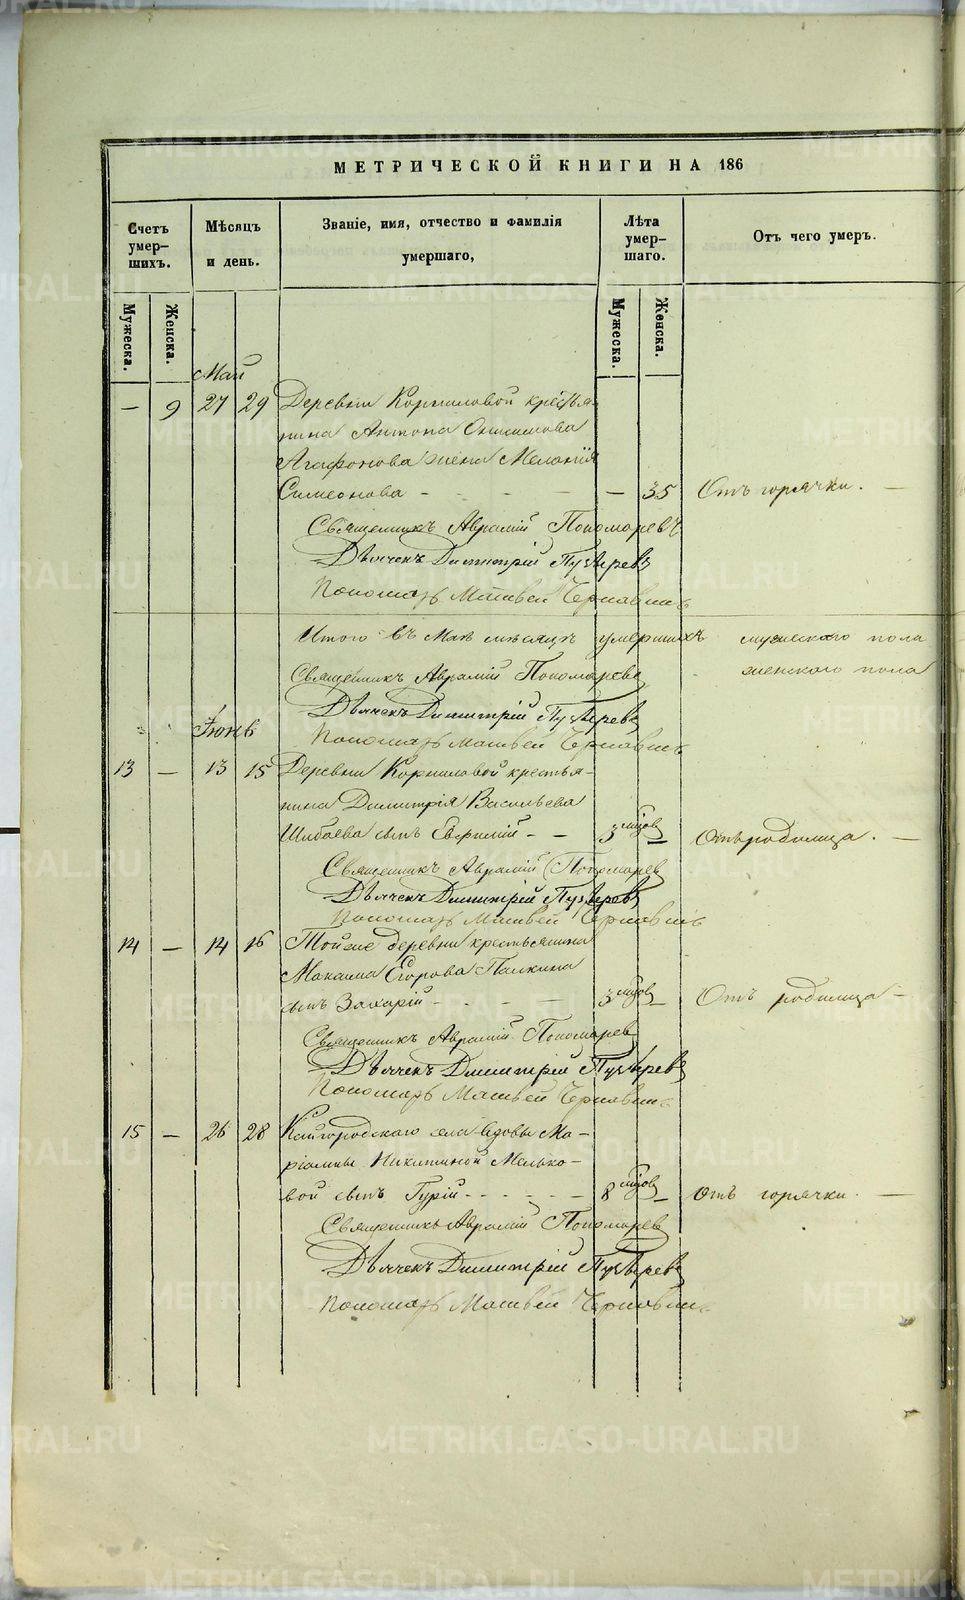 МЕТРИЧЕСКОЙ КНИГИ НА 186
Счетъ умер-шихъ.
Мѣсяцъ и день.
Званіе, имя, отчество и фамилія умершаго,
Лѣта умер-шаго.
Отъ чего умеръ.
Мужеска.
Женска.
Мужеска.
Женска.
Май
— 9 27 29 Деревни Корниловой крестья-
нина Антона Онисимова
Агафонова жена Меланія
Симеонова - - - — 35 Отъ горячки. —
Священникъ Аврамій Пономаревъ
Дьячекъ Димитрій Пузыревъ
Пономарь Матвей Чернавинъ
Итого въ Маѣ мѣсяцѣ умершихъ мужескаго пола
женскаго пола
Священникъ Аврамій Пономаревъ
Дьячекъ Димитрій Пузыревъ
Пономарь Матвей Чернавинъ
Іюнь
13 — 13 15 Деревни Корниловой крестья-
нина Димитрія Васильева
Шибаева сынъ Евфимій - - 3 мѣсцов — Отъ родимца. —
Священникъ Аврамій Пономарев
Дьячекъ Димитрій Пузыревъ
Пономарь Матвей Чернавинъ
14 — 14 16 Тойже деревни крестьянина
Максима Егорова Палкина
сынъ Захарій - - - - 3 мѣсцов — Отъ родимца —
Священникъ Аврамій Пономарев
Дьячекъ Димитрій Пузыревъ
Пономарь Матвей Чернавинъ
15 — 26 28 Кайгородскаго села вдовы Ма-
ріамны Никитиной Мелько-
вой сынъ Гурій - - - - - 8 мѣсцов — Отъ горячки. —
Священникъ Аврамій Пономарев
Дьячекъ Димитрій Пузыревъ
Пономарь Матвей Чернавинъ
METRIKI.GASO-URAL.RU